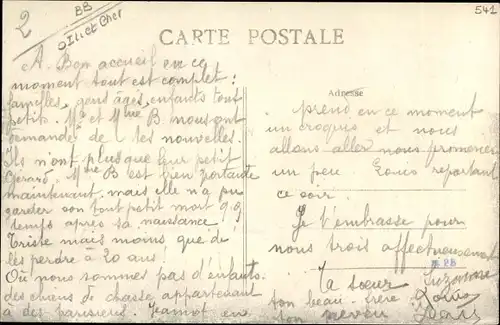 2
BB
Oilletcher
541
CARTE POSTALE
A. Bon accueil en ce
moment tout est complet :
familles, gens âgés, enfants tout
petits. Mr et Mme B nous ont
demandé de tes nouvelles.
Ils n'ont plus que leur petit
Gérard. Mme B est bien portante
maintenant, mais elle n'a pu
garder son tout petit mort qq
temps après sa naissance !
Triste mais moins que de
les perdre à 20 ans !
Où nous sommes pas d'enfants.
des chiens de chasse appartenant
à des parisiens. Jeannot en
Adresse
prend en ce moment
un croquis et nous
allons aller nous promener
un peu. Louis repartant
ce soir.
Je t'embrasse pour
nous trois affectueusement
BB
Ta soeur Suzanne
ton beau-frère Louis
ton neveu